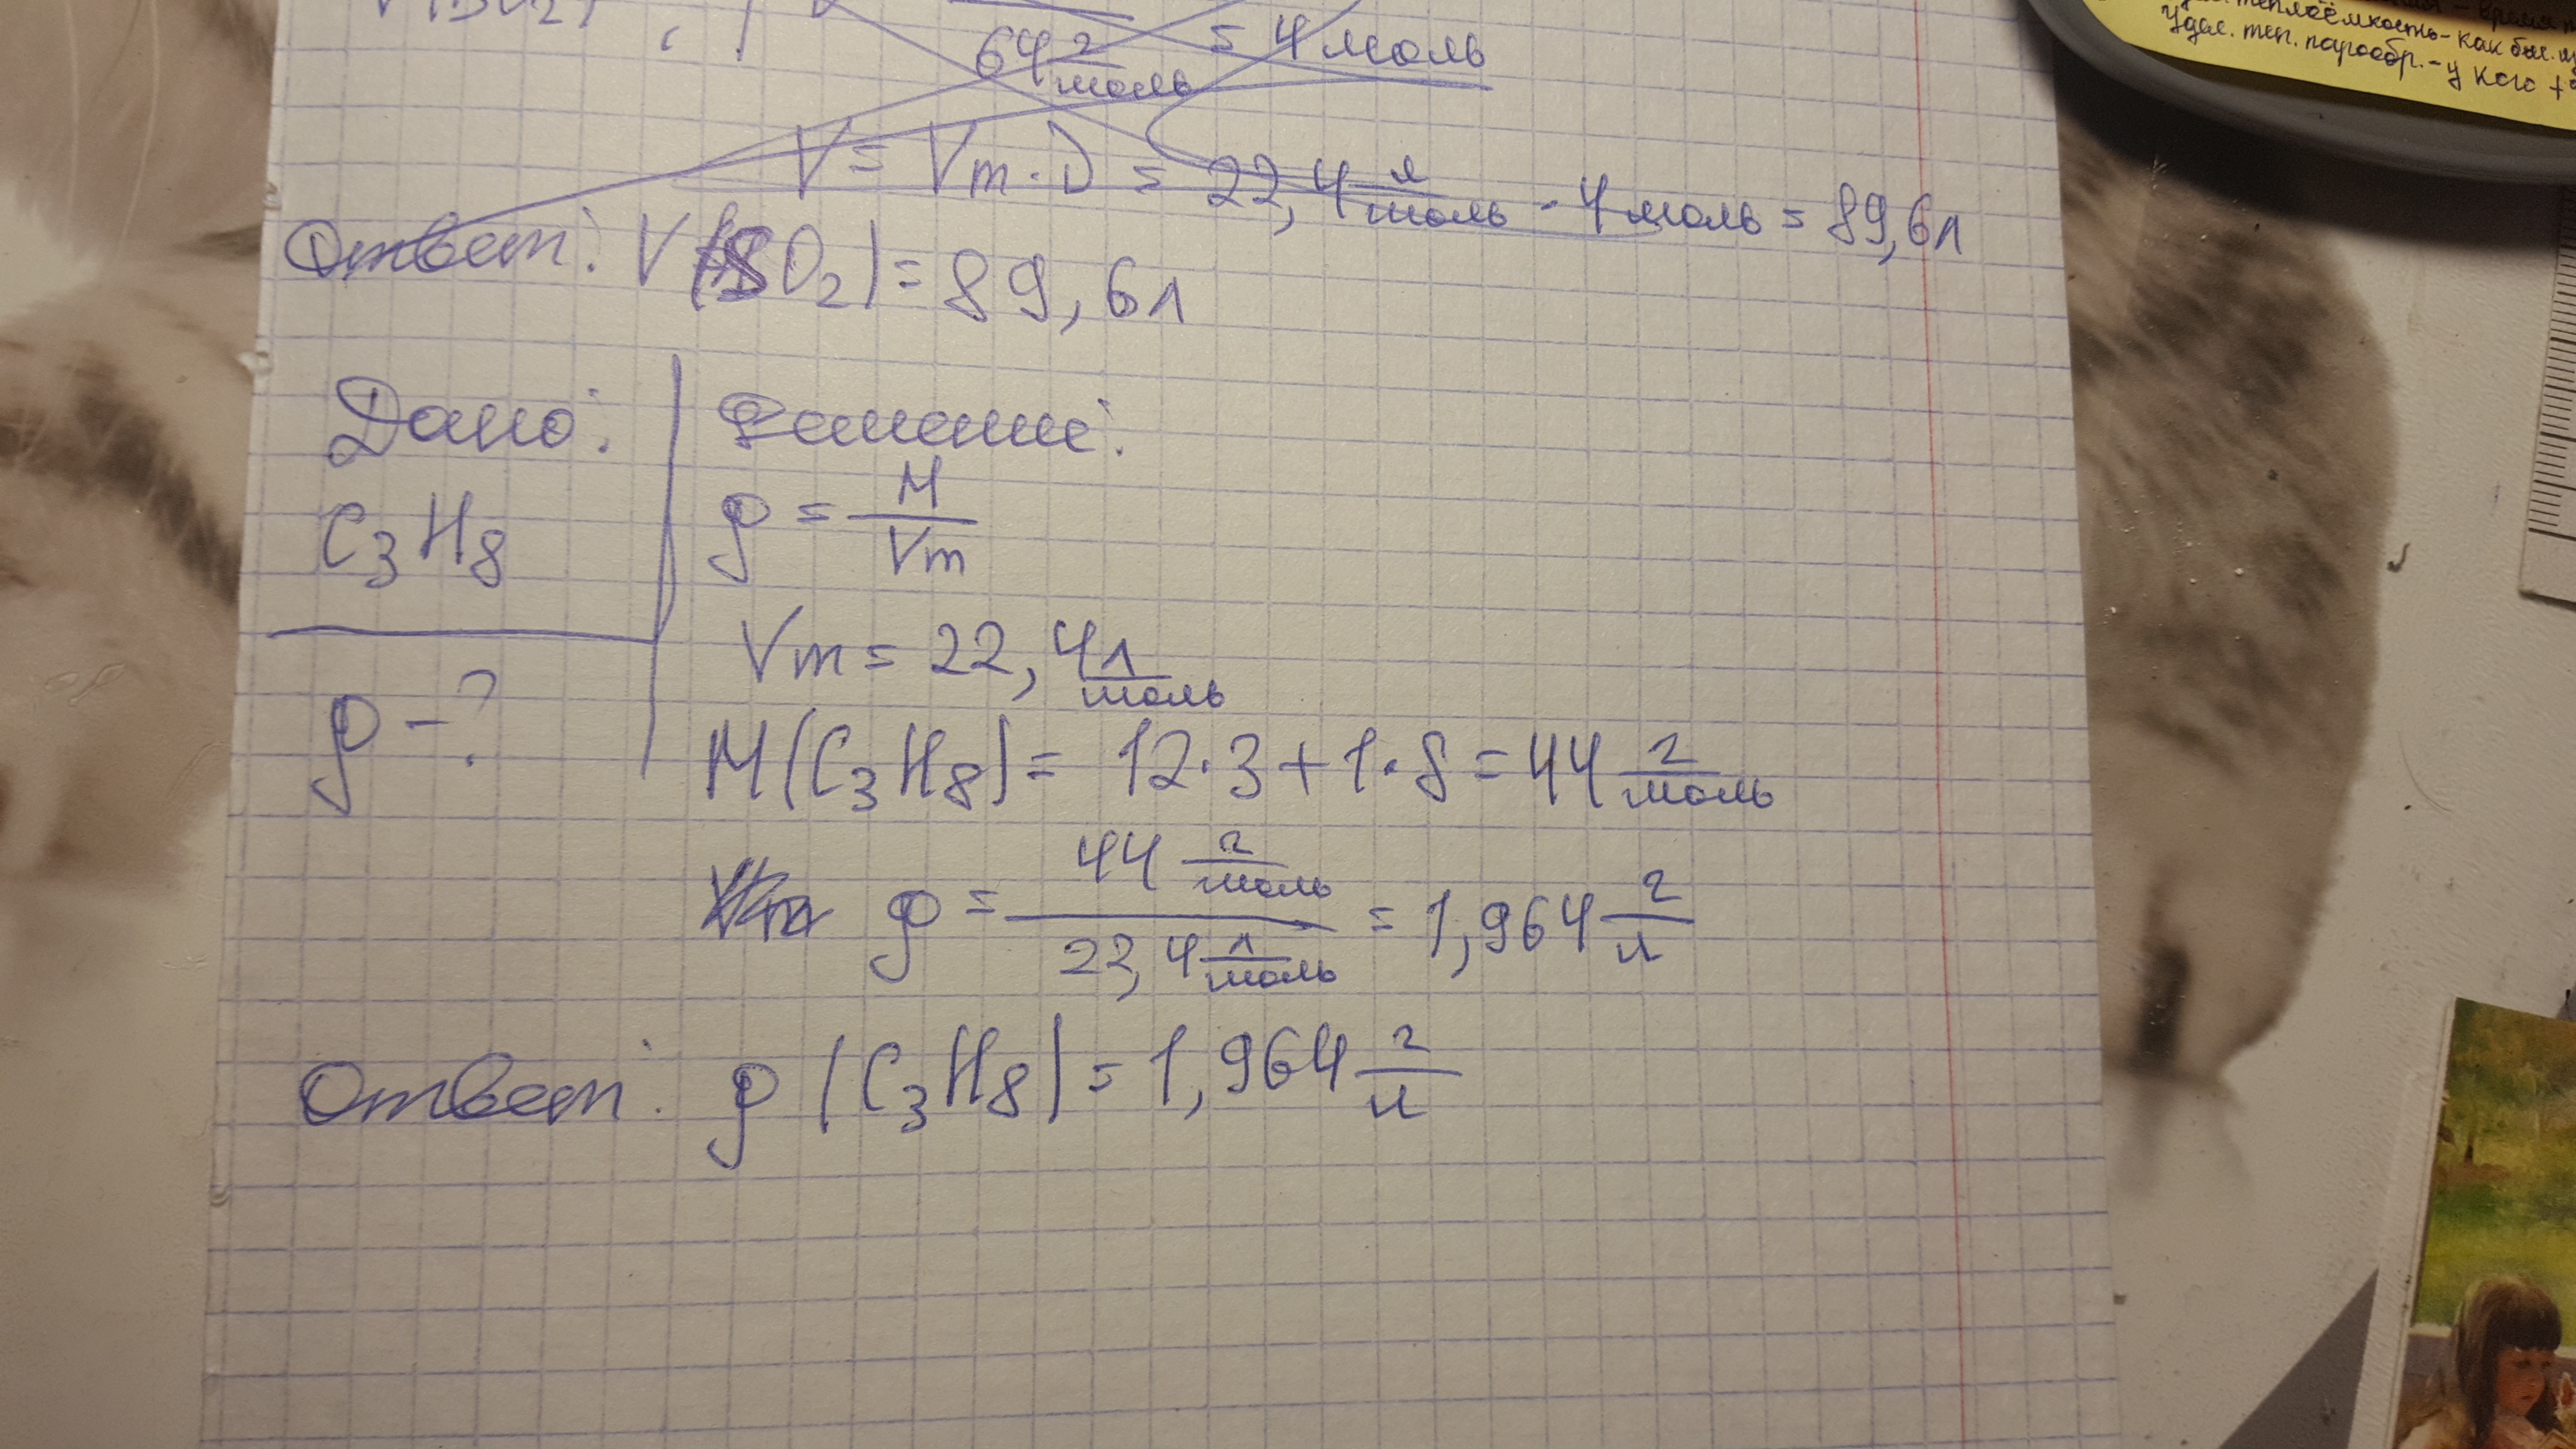 64 г/моль = 4 моль
V = Vm · D = 22,4 л/моль · 4 моль = 89,6 л
Ответ: V(SO₂) = 89,6 л
Дано:
C₃H₈
ρ - ?
Решение:
ρ = M/Vm
Vm = 22,4 л/моль
M(C₃H₈) = 12·3+1·8 = 44 г/моль
ρ = 44 г/моль / 22,4 л/моль = 1,964 г/л
Ответ: ρ (C₃H₈) = 1,964 г/л
теплоёмкость - как был.
удел. теп. парообр. - у кого +